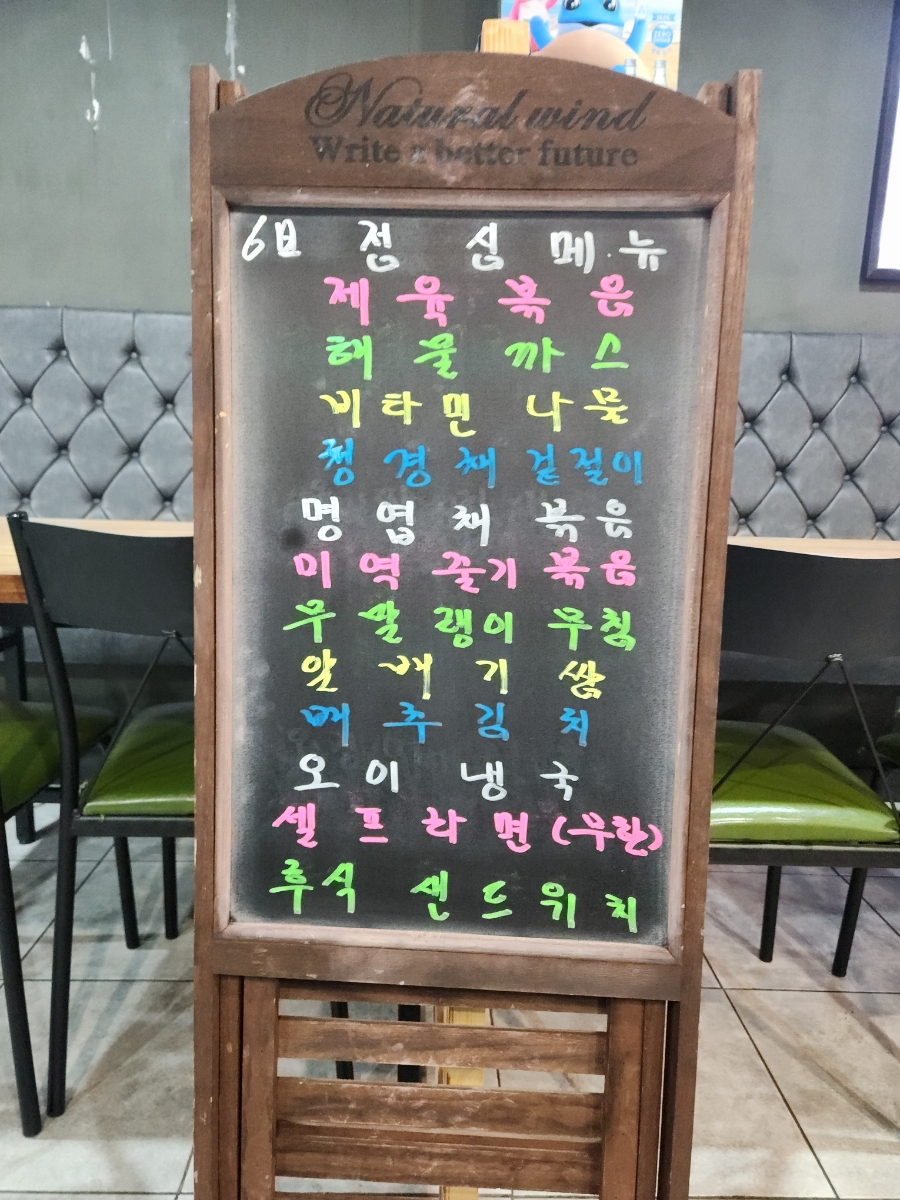 Natural wind
Write a better future
6日 점심 메뉴
제육볶음
해물까스
비타민 나물
청경채 겉절이
명엽채 볶음
미역줄기 볶음
무말랭이 무침
알배기 쌈
배추김치
오이 냉국
셀프라면 (무한)
후식 샌드위치